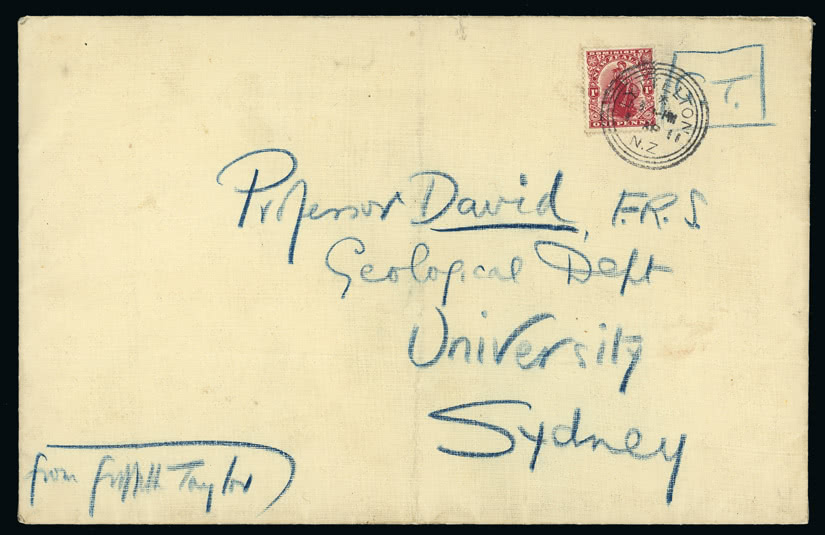 DOMINION OF
1D 1D
ONE PENNY
LYTTELTON
N.Z
T.
Professor David, F.R.S.
Geological Dept
University
Sydney
from Griffith Taylor